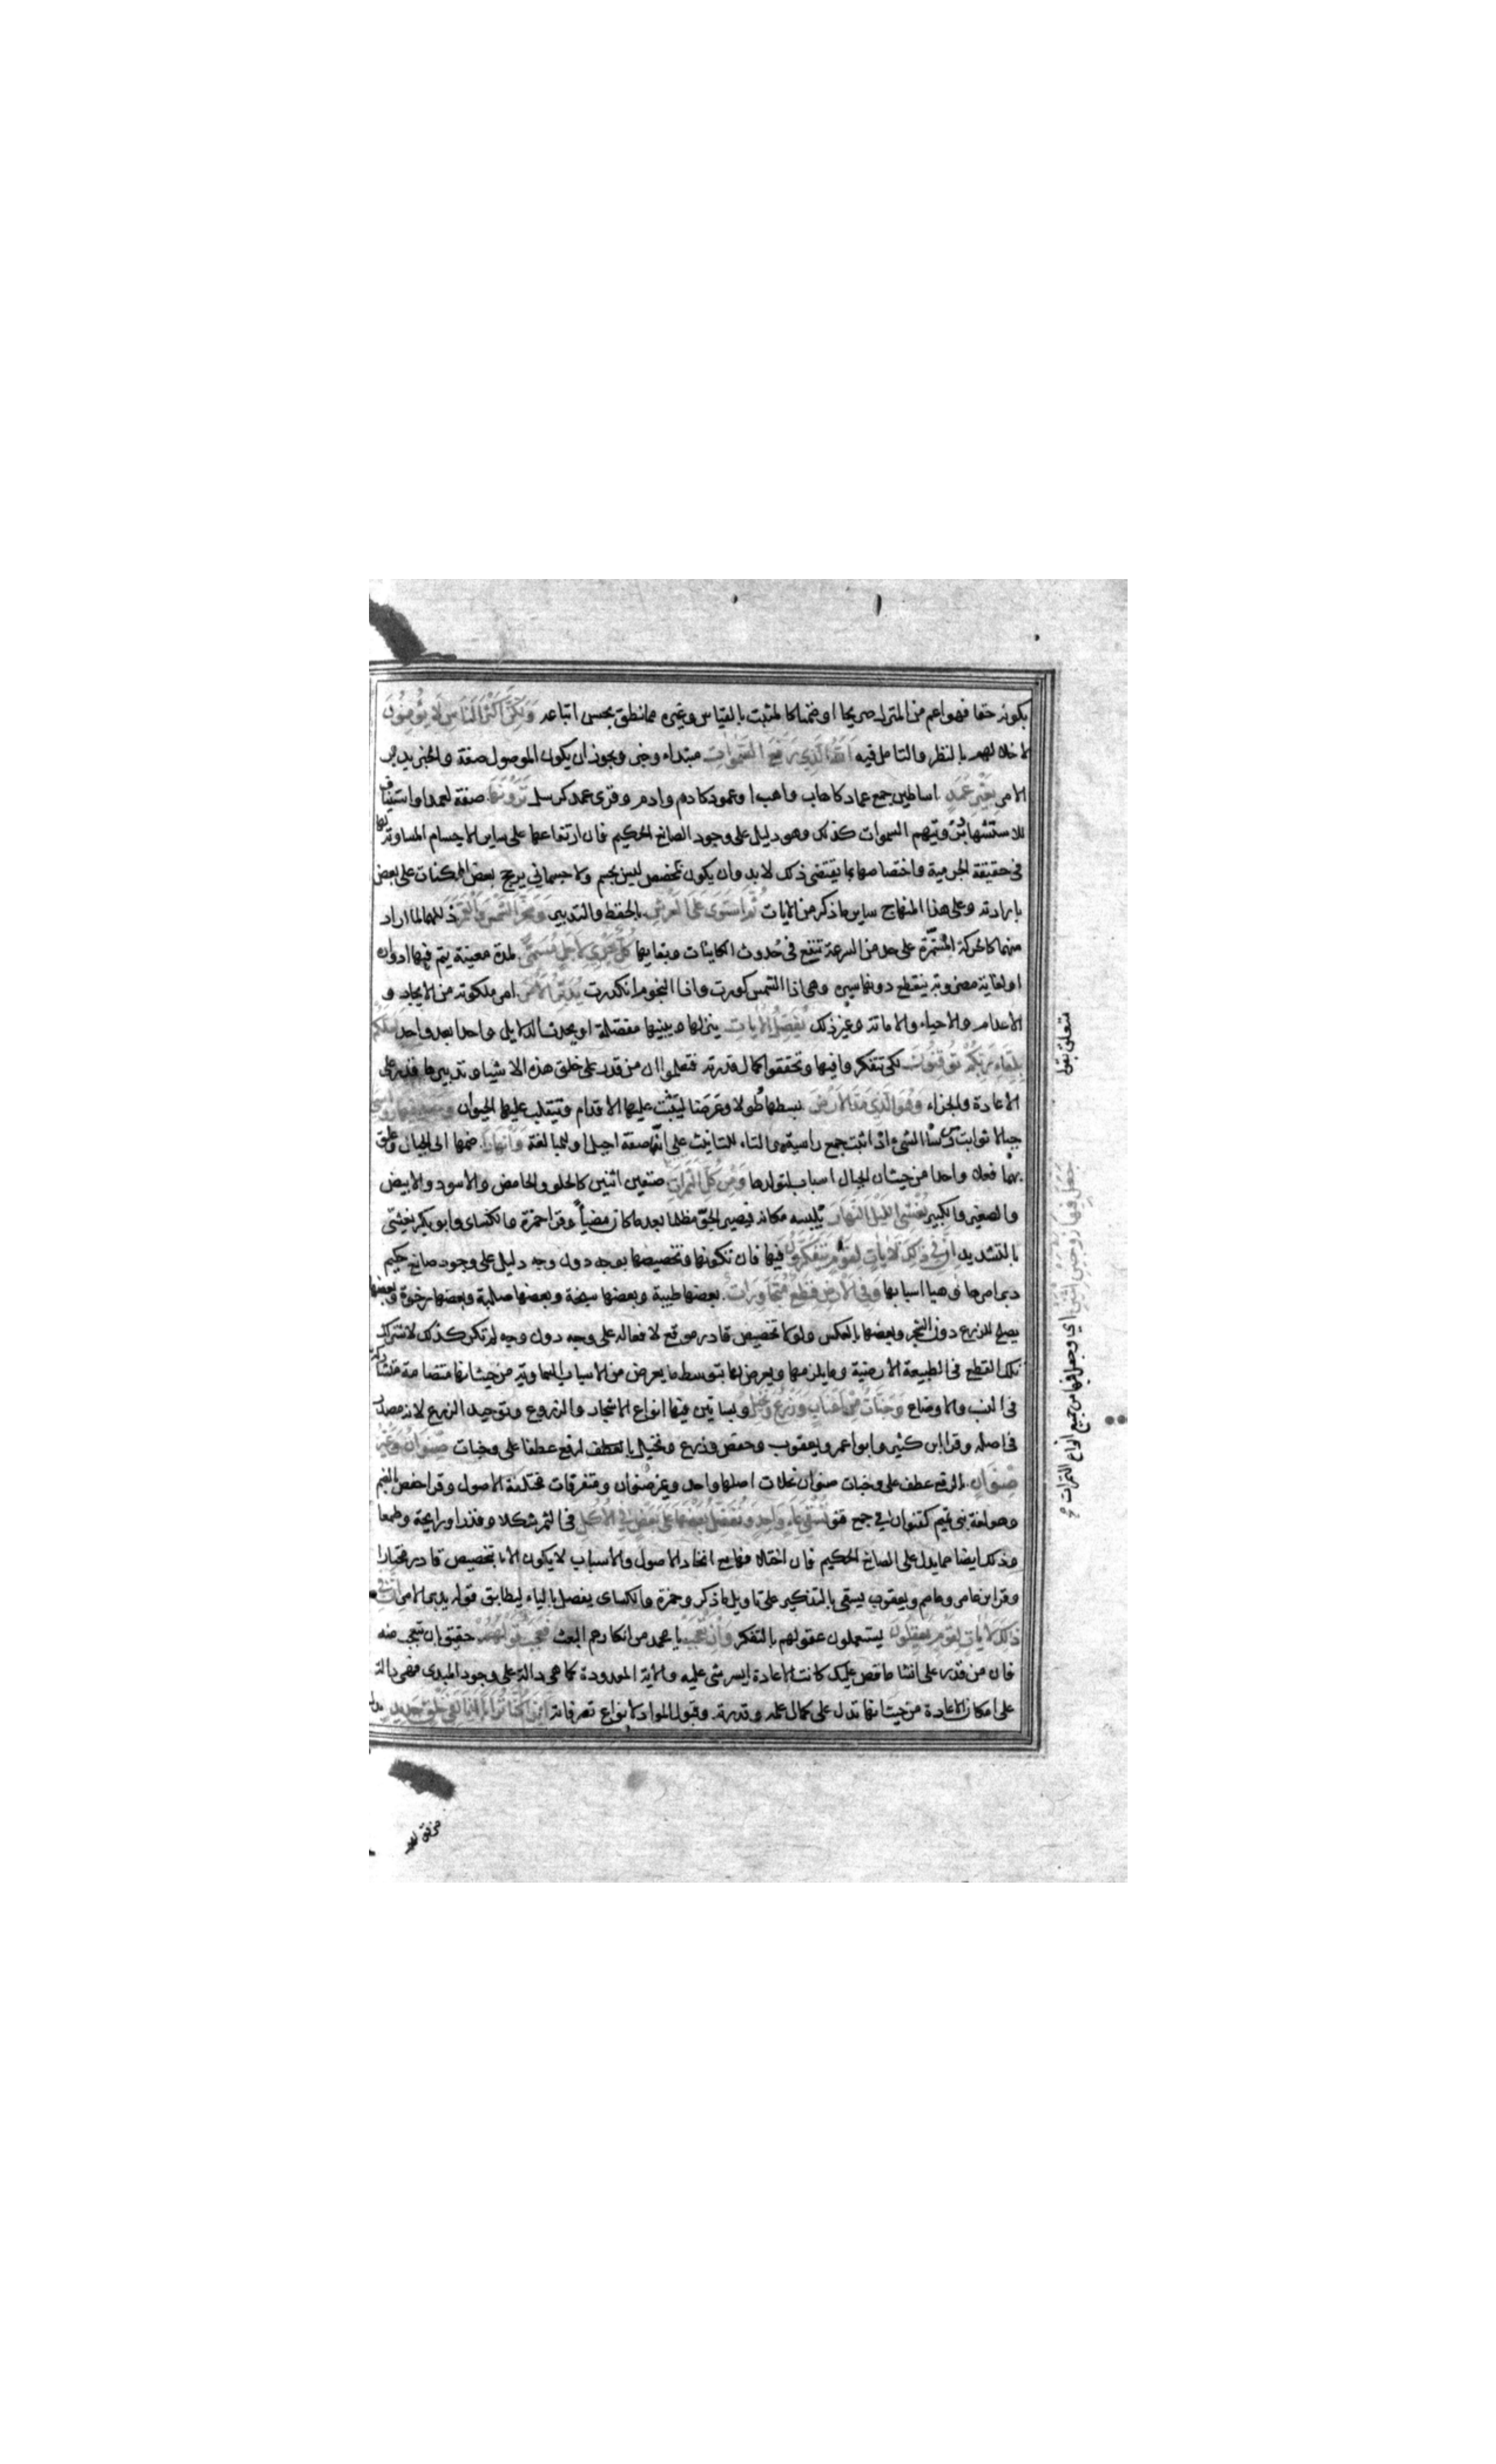 بكونه حقا فهو اعم من المنزل صريحا او ضمنا كالمثبت بالقياس وغيره مما نطق بحسن اتباعه وَلَكِنَّ أَكْثَرَ النَّاسِ لَا يُؤْمِنُونَ
لاخلالهم بالنظر والتامل فيه اَللّٰهُ الَّذِي رَفَعَ السَّمَوَاتِ مبتداء وخبر ويجوز ان يكون الموصول صفة والخبر يدبر
الامر بِغَيْرِ عَمَدٍ اساطين جمع عماد كاهاب واهب او عمود كادم وادم وقرئ عمد كرسل تَرَوْنَهَا صفة لعمد او استيناف
للاستشهاد برؤيتهم السموات كذلك وهو دليل على وجود الصانع الحكيم فان ارتفاعها على ساير الاجسام المساوية لها
فى حقيقة الجرمية واختصاصها بما يقتضى ذلك لا بد وان يكون بمخصص ليس بجسم ولا جسمانى يرجح بعض الممكنات على بعض
بارادته وعلى هذا المنهاج ساير ما ذكر من الايات ثُمَّ اسْتَوَى عَلَى الْعَرْشِ بالحفظ والتدبير وَسَخَّرَ الشَّمْسَ وَالْقَمَرَ ذللهما لما اراد
منهما كالحركة المستمرّة على حد من السرعة تنفع فى حُدوث الكاينات وبقايها كُلٌّ يَجْرِي لِأَجَلٍ مُسَمًّى لمدة معينة يتم فيها ادواره
او لغاية مضروبة ينقطع دونها سيره وهى اذا الشمس كورت واذا النجوم انكدرت يُدَبِّرُ الْأَمْرَ امر ملكوته من الايجاد و
الاعدام والاحياء والاماتة وغير ذلك يُفَصِّلُ الْآيَاتِ ينزلها ويبينها مفصلة او يحدث الدلايل واحدا بعد واحد لَعَلَّكُمْ
بِلِقَاءِ رَبِّكُمْ تُوقِنُونَ لكى تتفكروا فيها وتحققوا كمال قدرته فتعلموا ان من قدر على خلق هذه الاشياء وتدبيرها قدر على
الاعادة والجزاء وَهُوَ الَّذِي مَدَّ الْأَرْضَ بسطها طُولا وعَرضا ليَثبُت عليها الاقدام ويتقلب عليها الحيوان وَجَعَلَ فِيهَا رَوَاسِيَ
جبالا ثوابت من رسا الشىء اذا اثبت جمع راسية والتاء للتانيث على انّها صفة اجبل او للمبالغة وَأَنْهَارًا ضمها الى الجبال وعلق
بهما فعلا واحدا من حيث ان الجبال اسباب لتولدها وَمِنْ كُلِّ الثَّمَرَاتِ صنفين اثنين كالحلو والحامض والاسود والابيض
والصغير والكبير يُغْشِي اللَّيْلَ النَّهَارَ يُلبسه مكانه فيصير الجوّ مظلما بعد ما كان مضياً وقرا حمزة والكساى وابو بكر يغشّى
بالتشديد إِنَّ فِي ذَلِكَ لَآيَاتٍ لِقَوْمٍ يَتَفَكَّرُونَ فيها فان تكونها وتخصيصها بوجه دون وجه دليل على وجود صانع حكيم
دبر امرها وهيا اسبابها وَفِي الْأَرْضِ قِطَعٌ مُتَجَاوِرَاتٌ بعضها طيبة وبعضها سبخة وبعضها صلبة وبعضها رخوة وبعضها
يصلح للزرع دون الشجر وبعضها بالعكس ولولا تخصيص قادر موقع لافعاله على وجه دون وجه لم تكن كذلك لاشتراك
تلك القطع فى الطبيعة الارضية وما يلزمها ويعرض لها بتوسط ما يعرض من الاسباب السماوية من حيث انها متضامة متشاركة
فى النسب والاوضاع وَجَنَّاتٌ مِنْ أَعْنَابٍ وَزَرْعٌ وَنَخِيلٌ وبساتين فيها انواع الاشجار والزروع وتوحيد الزرع لانه مصدر
فى اصله وقرا ابن كثير وابو عمرو ويعقوب وحفص وزرع ونخيل بالعطف لرفع عطفا على وجنات صِنْوَانٌ وَغَيْرُ
صِنْوَانٍ بالرفع عطف على وجنات صنوان نخلات اصلها واحد وغير صنوان ومتفرقات مختلفة الاصول وقرا حفص بالضم
وهو لغة بنى تميم كقنوان فى جمع قنو تُسْقَى بِمَاءٍ وَاحِدٍ وَنُفَضِّلُ بَعْضَهَا عَلَى بَعْضٍ فِي الْأُكُلِ فى الثمر شكلا وقدرا ورايحة وطعما
وذلك ايضا مما يدل على الصانع الحكيم فان اختلافها مع اتحاد الاصول والاسباب لا يكون الا بتخصيص قادر مختار
وقرا ابن عامر وعاصم ويعقوب يسقى بالتذكير على تاويل ما ذكر وحمزة والكساى يفصل بالياء ليطابق قوله يدبر الامر إِنَّ فِي
ذَلِكَ لَآيَاتٍ لِقَوْمٍ يَعْقِلُونَ يستعملون عقولهم بالتفكر وَإِنْ تَعْجَبْ يا محمد من انكارهم البعث فَعَجَبٌ قَوْلُهُمْ حقيق ان تتعجب منه
فان من قدر على انشا ما قص عليك كانت الاعادة ايسر شى عليه والاية المعدودة كما هى دالة على وجود المبدى فهى دالة
على امكان الاعادة من حيث انها تدل على كمال علمه وقدرته وقبول المواد لانواع تصرفاته أَإِذَا كُنَّا تُرَابًا أَإِنَّا لَفِي خَلْقٍ جَدِيدٍ بدل
متعلق بقول
جَعَلَ فِيهَا زَوْجَيْنِ اثْنَيْنِ اي وجعل فيها من جميع انواع الثمرات
من قولهم